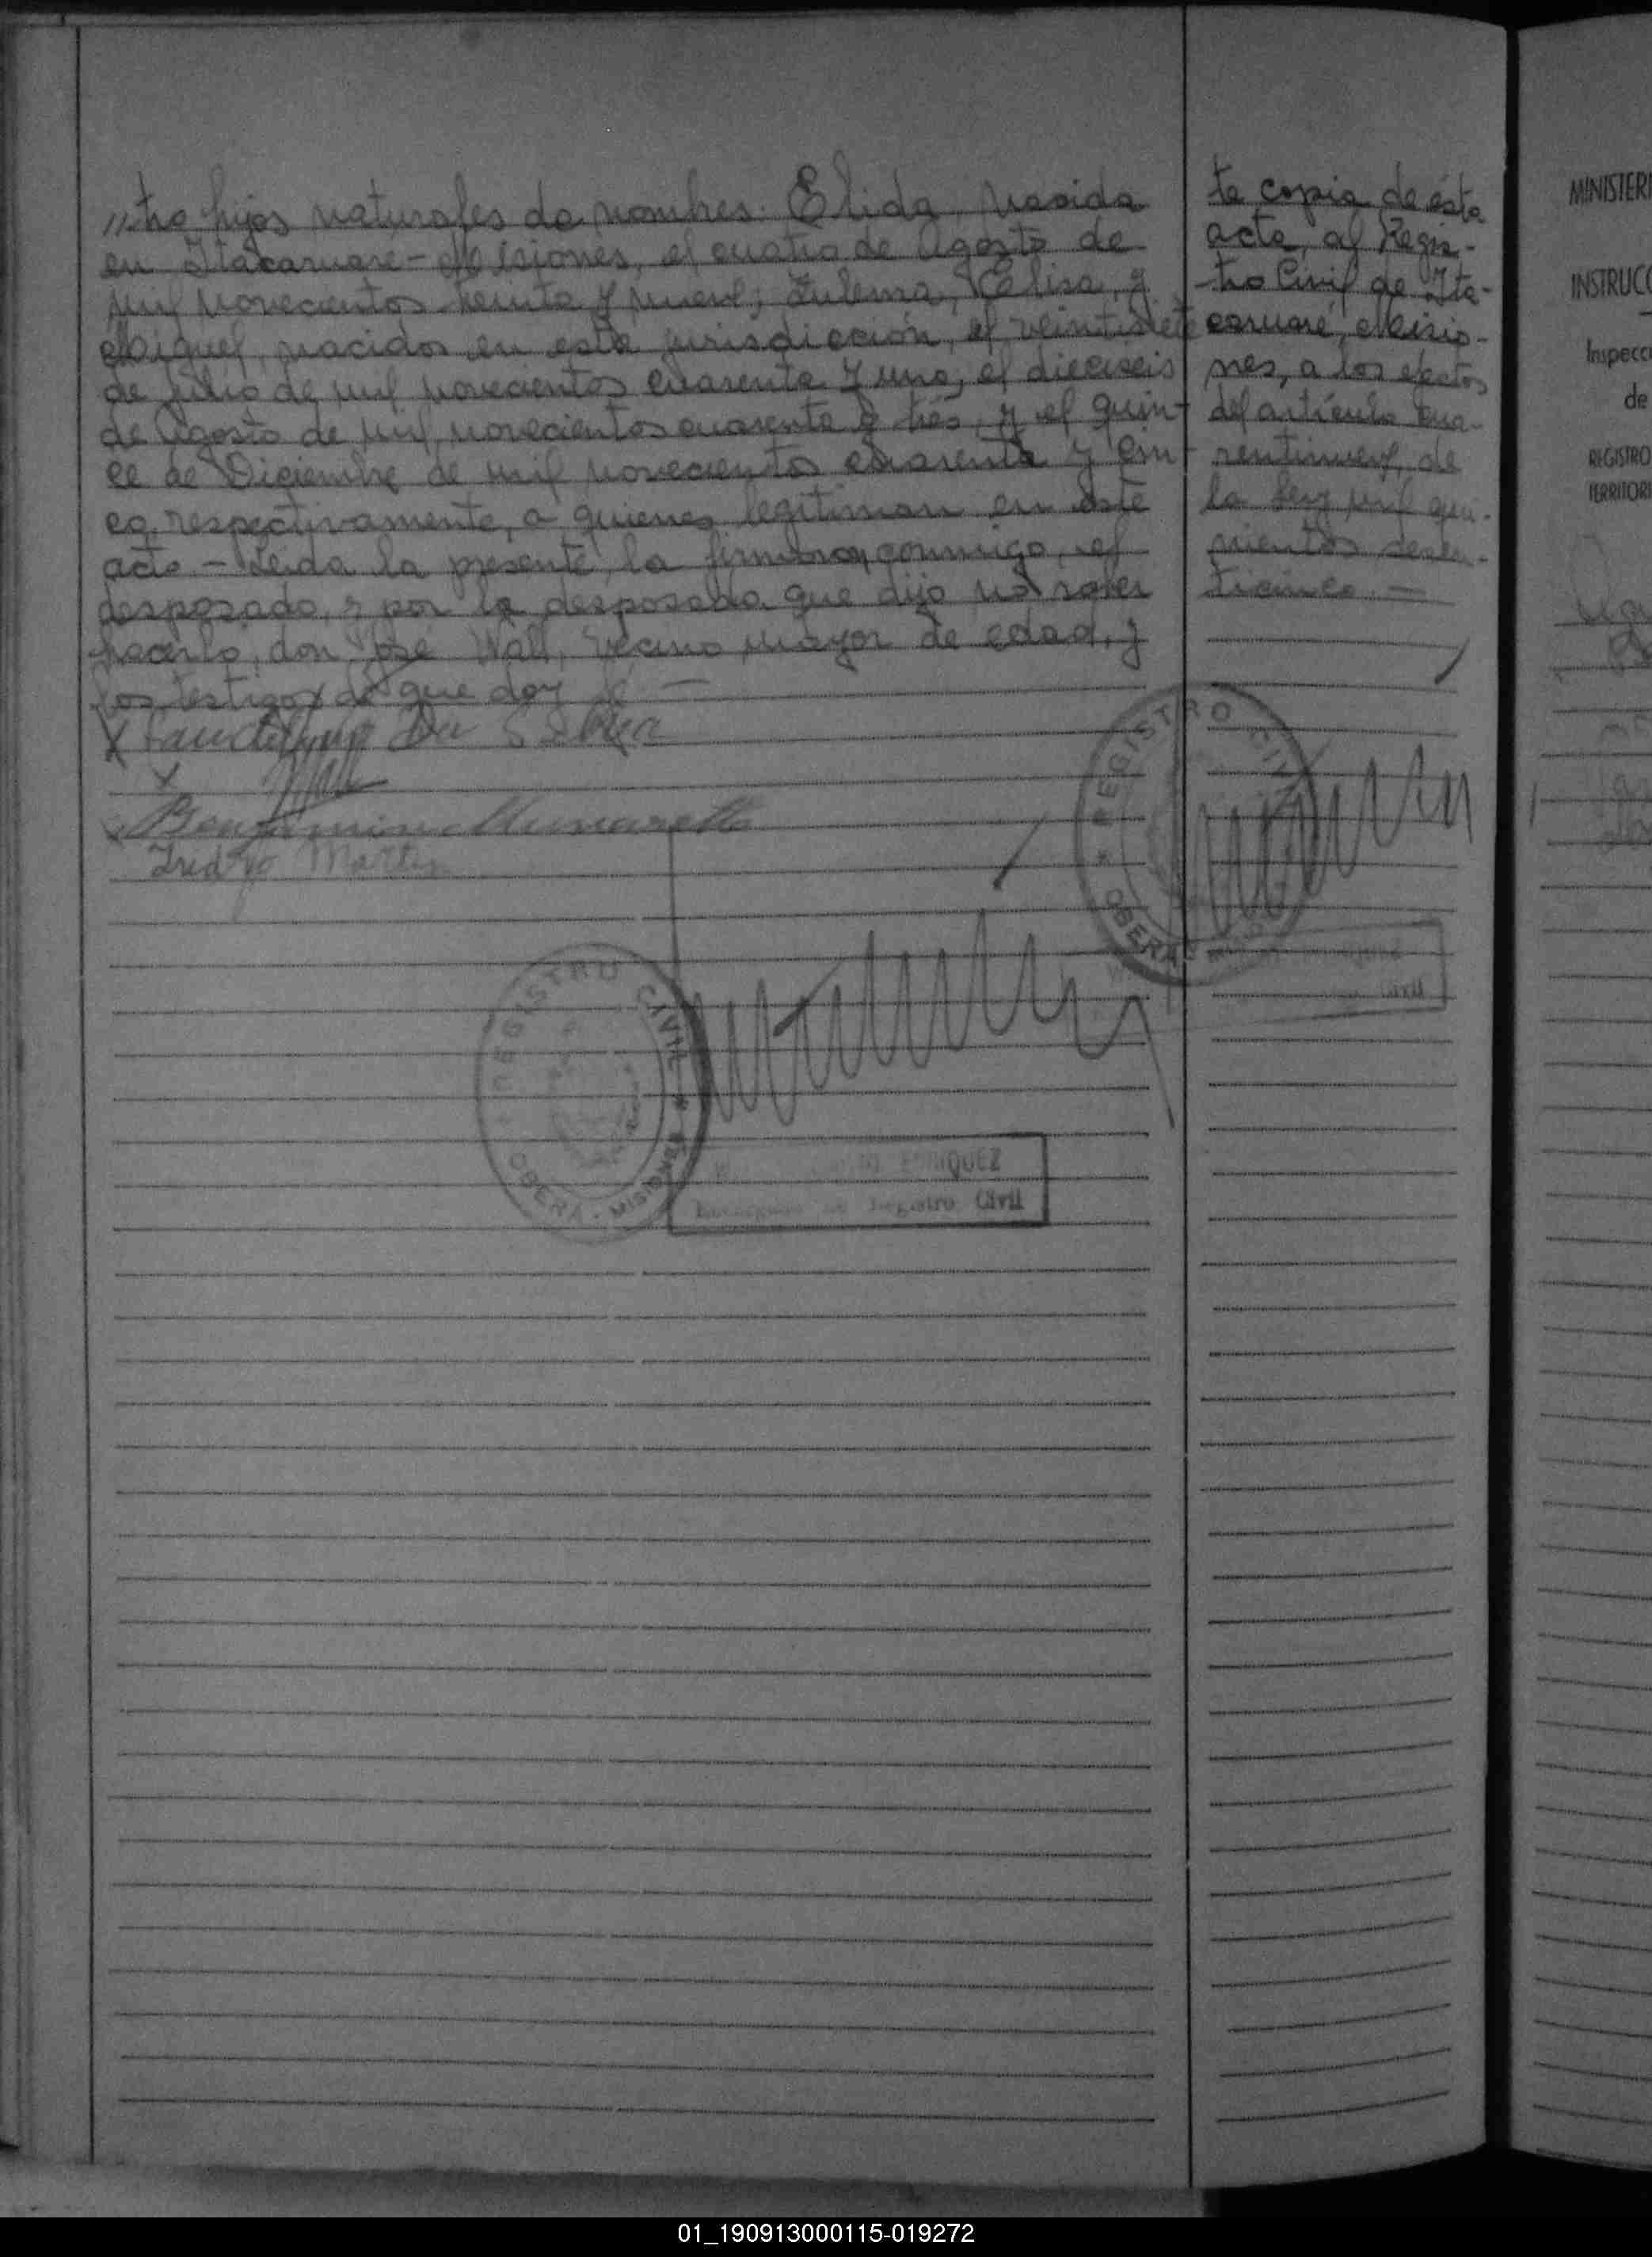 "tro hijos naturales de nombres: Elida, nacida
en Itacaruaré - Misiones, el cuatro de Agosto de
mil novecientos treinta y nueve; Zulema, Elisa, y
Miguel, nacidos en esta jurisdicción, el veintisiete
de julio de mil novecientos cuarenta y uno, el dieciseis
de Agosto de mil novecientos cuarenta y trés, y el quin-
ce de Diciembre de mil novecientos cuarenta y cin-
co, respectivamente, a quienes legitiman en este
acto - Leida la presente, la firmaron conmigo, el
desposado, y por la desposada que dijo no saber
hacerlo, don José Wall, vecino mayor de edad, y
los testigos de que doy fé -
X Da Silva
X
Benjamin
REGISTRO CIVIL
OBERA - MISIONES
ENRIQUEZ
Encargado del Registro Civil
te copia de ésta
acta, al Regis-
tro Civil de Ita-
caruaré, Misio-
nes, a los efectos
del artículo cua-
rentinueve, de
la Ley mil qui-
nientos sesen-
ticinco. -
REGISTRO CIVIL
OBERA
Civil
MINISTERI
INSTRUCC
Inspecci
de
REGISTRO
TERRITORI
01_190913000115-019272